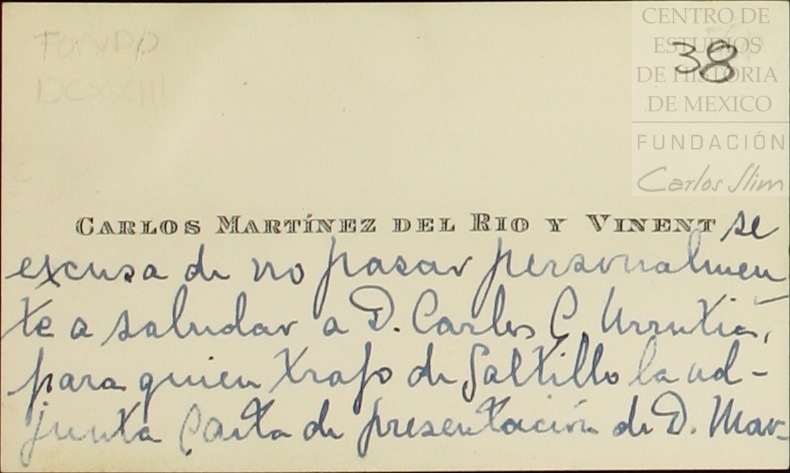 FONDO
DCXXIII
38
CENTRO DE
ESTUDIOS
DE HISTORIA
DE MEXICO
FUNDACIÓN
Carlos Slim
CARLOS MARTÍNEZ DEL RIO Y VINENT se
excusa de no pasar personalmen
te a saludar a D. Carlos C. Urrutia,
para quien trajo de Saltillo la ad-
junta Carta de presentación de D. Mar-